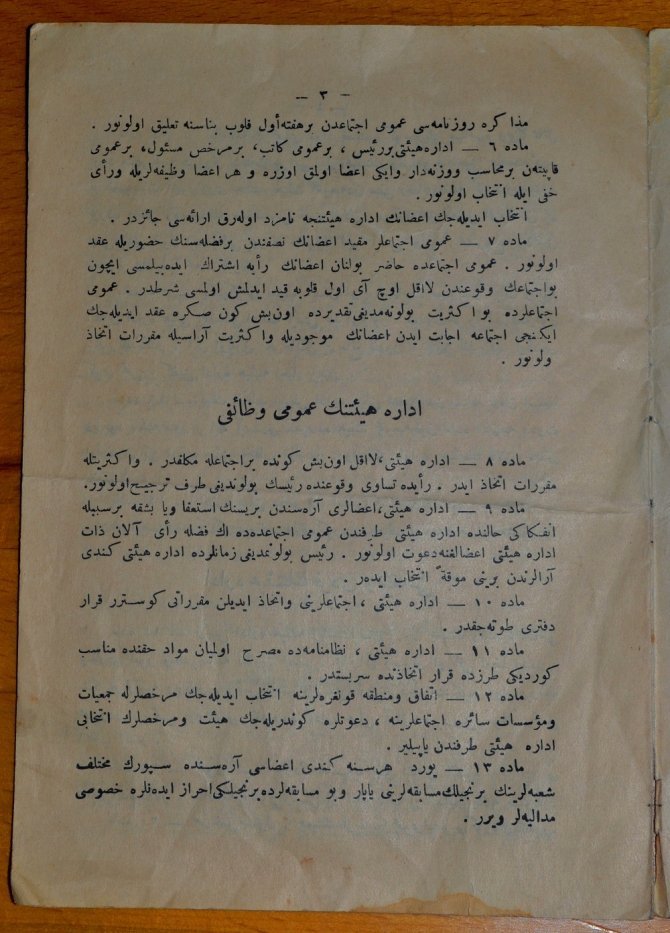 — ٣ —
مذاكره روزنامه‌سی عمومی اجتماعدن برهفته‌أول قلوب بناسنه تعلیق اولونور .
ماده ٦ — اداره‌هیئتی بررئیس ، برعمومی كاتب، برمرخص مسئول، برعمومی
قاپیته‌ن برمحاسب ووزنه‌دار وایكی اعضا اولمق اوزره و هر اعضا وظیفه‌لریله ورأی
خفی ایله انتخاب اولونور .
انتخاب ایدیله‌جك اعضانك اداره هیئتنجه نامزد اوله‌رق ارائه‌سی جائزدر .
ماده ٧ — عمومی اجتماعلر مقید اعضانك نصفندن برفضله‌سنك حضوریله عقد
اولونور . عمومی اجتماعده حاضر بولنان اعضانك رأیه اشتراك ایده‌بیلمسی ایچون
بواجتماعك وقوعندن لااقل اوچ آی اول قلوبه قید ایدلمش اولمسی شرطدر . عمومی
اجتماعلرده بو اكثریت بولونه‌مدیغی تقدیرده اون‌بش كون صكره عقد ایدیله‌جك
ایكنجی اجتماعه اجابت ایدن اعضانك موجودیله واكثریت آراسیله مقررات اتخاذ
ولونور .
اداره هیئتنك عمومی وظائفی
ماده ٨ — اداره هیئتی،لااقل اون‌بش كونده براجتماعله مكلفدر . واكثریتله
مقررات اتخاذ ایدر . رأیده تساوی وقوعنده رئیسك بولوندیغی طرف ترجیح‌اولونور.
ماده ٩ — اداره هیئتی،اعضالری آره‌سندن بریسنك استعفا ویا بشقه برسبیله
انفكاكی حالنده اداره هیئتی طرفندن عمومی اجتماعده‌ده اك فضله رأی آلان ذات
اداره هیئتی اعضالغنه‌دعوت اولونور . رئیس بولونمدیغی زمانلرده اداره هیئتی كندی
آرالرندن برینی موقةً انتخاب ایده‌ر .
ماده ١٠ — اداره هیئتی ، اجتماعلرینی واتخاذ ایدیلن مقرراتی كوسترر قرار
دفتری طوته‌جقدر .
ماده ١١ — اداره هیئتی ، نظامنامه‌ده مصرح اولمیان مواد حقنده مناسب
كوردیكی طرزده قرار اتخاذنده سربستدر .
ماده ١٢ — اتفاق ومنطقه قونغره‌لرینه انتخاب ایدیله‌جك مرخصلرله جمعیات
ومؤسسات سائره اجتماعلرینه ، دعوتلره كوندریله‌جك هیئت ومرخصلرك انتخابی
اداره هیئتی طرفندن یاپیلیر .
ماده ١٣ — یورد هرسنه كندی اعضاسی آره‌سنده سپورك مختلف
شعبه‌لرینك برنجیلك‌مسابقه‌لرینی یاپار وبو مسابقه‌لرده‌برنجیلكی‌احراز ایده‌نلره خصوصی
مدالیه‌لر ویرر .